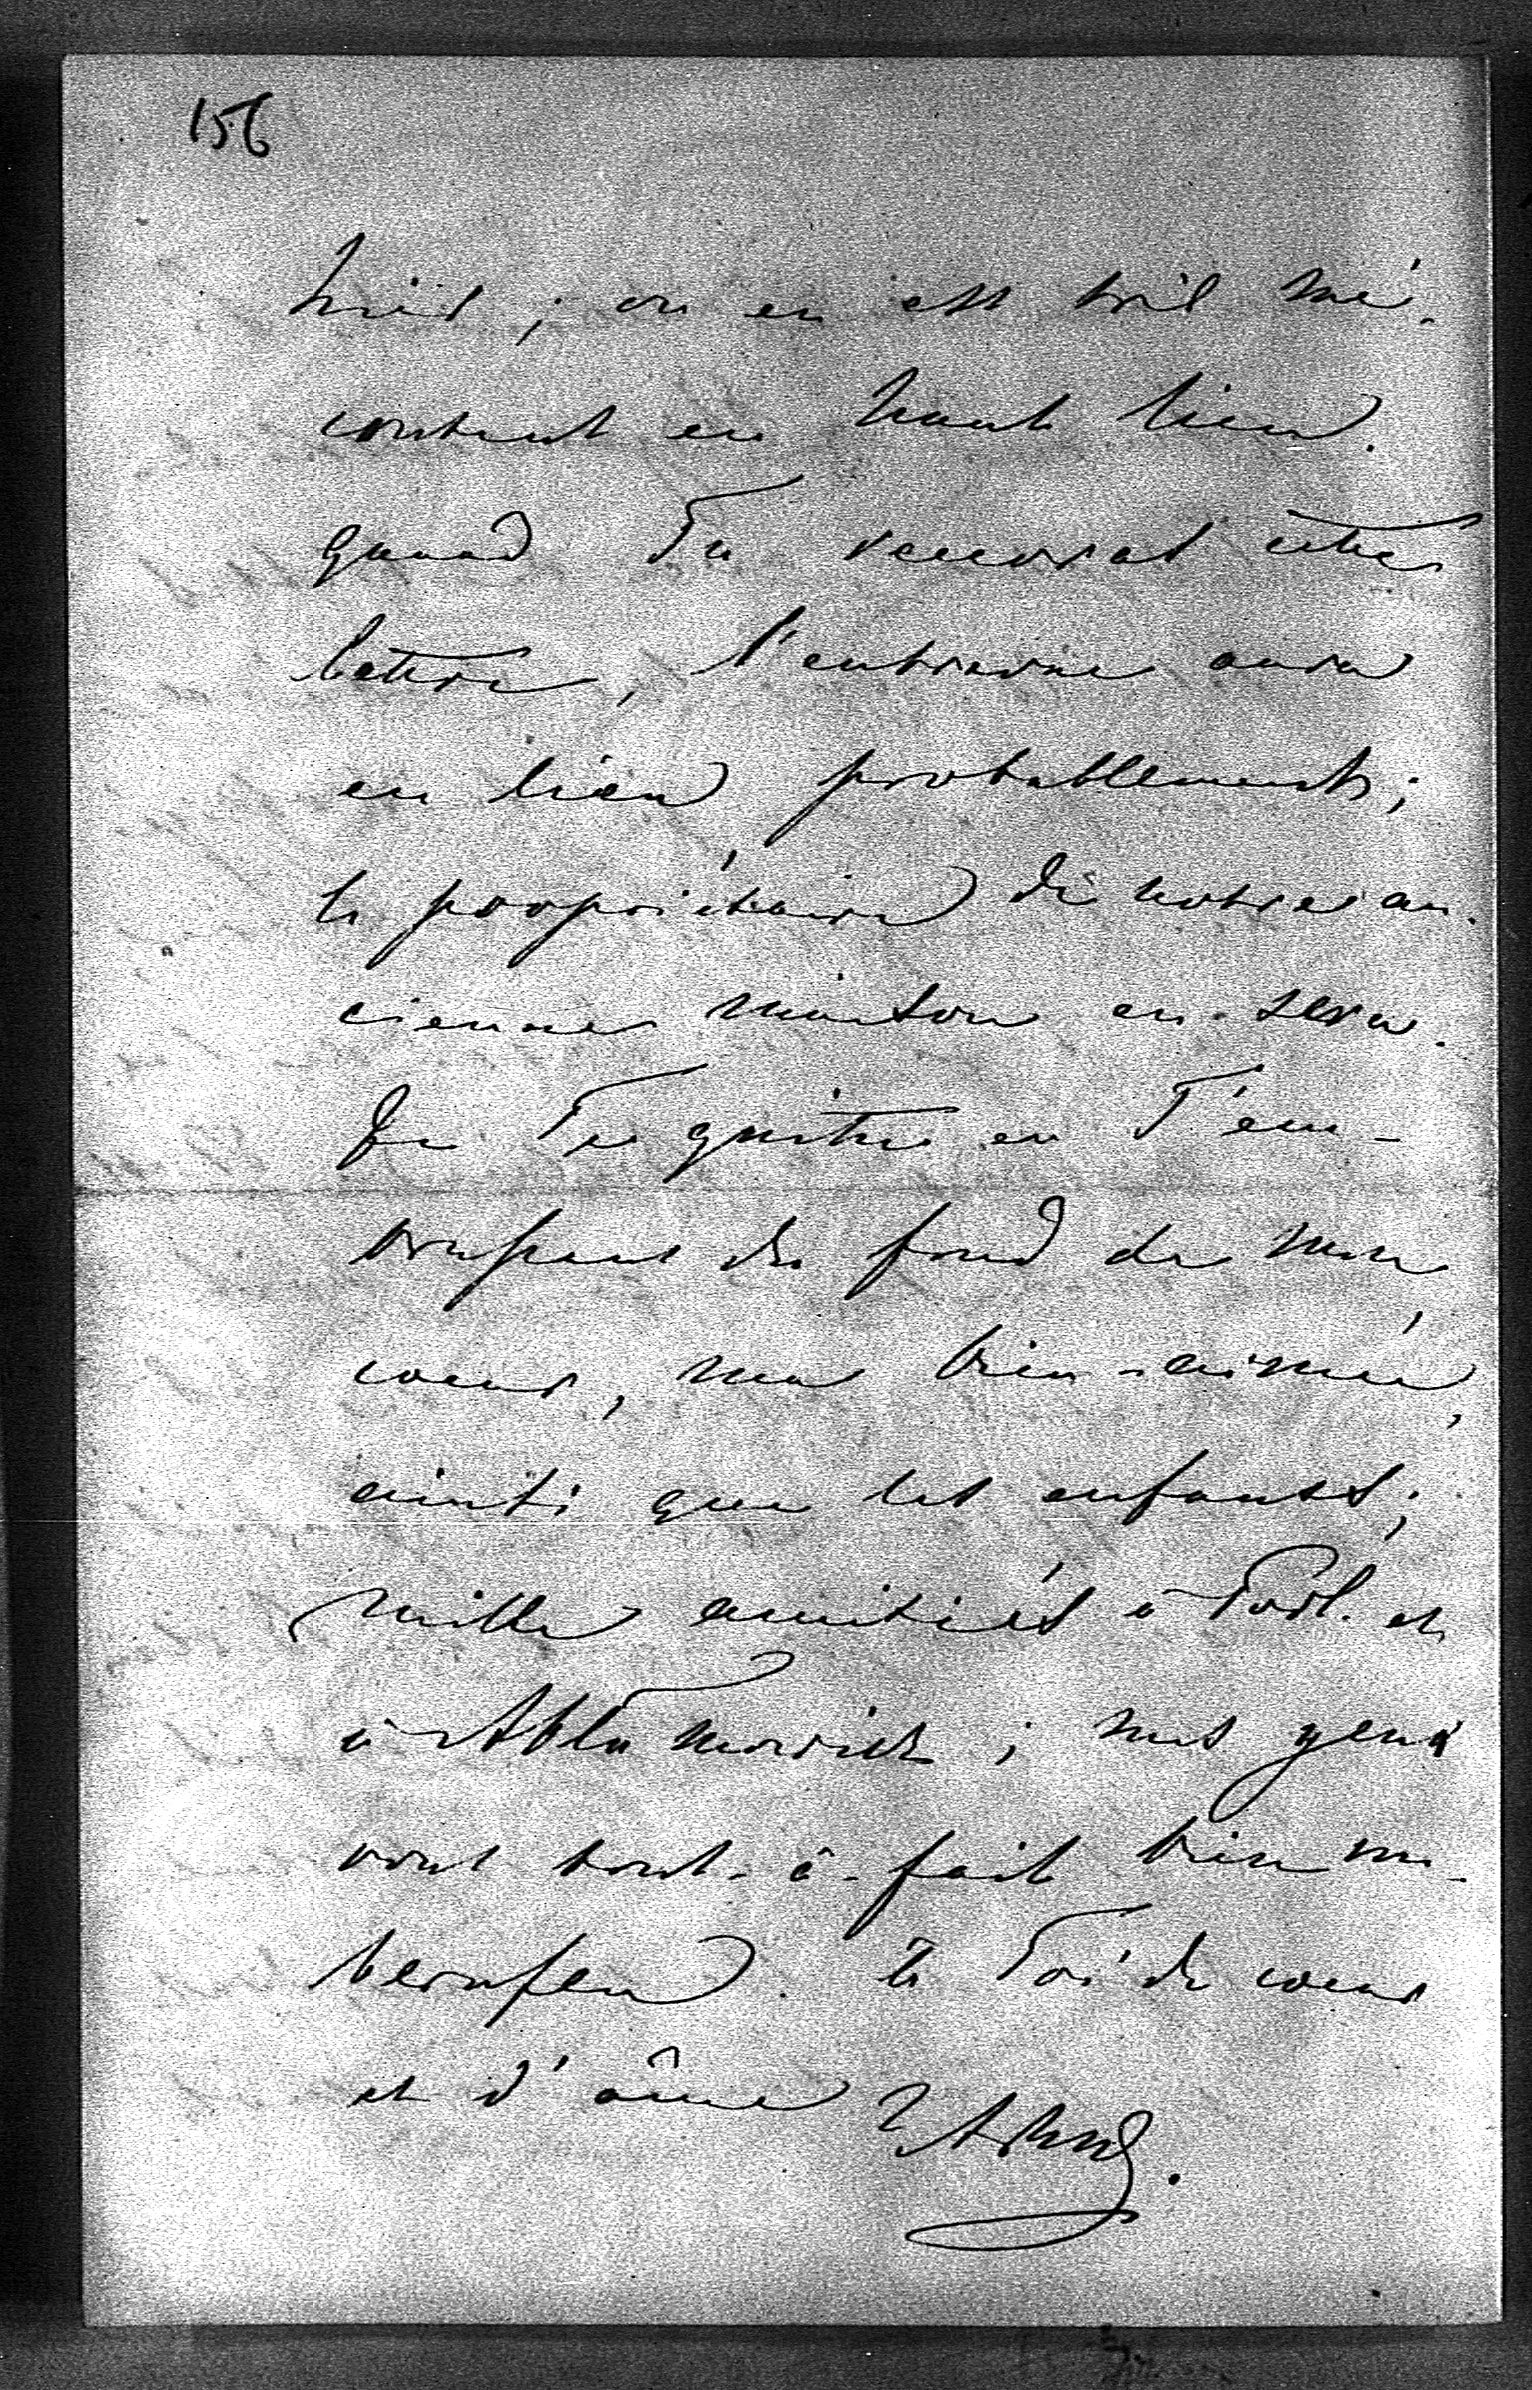 156
huit ; on en est très mé-
content en haut lieu.
quand Tu recevras cette
lettre, l'entrevue aura
eu lieu probablement ;
le propriétaire de notre an-
cienne maison en sera.
Je Te quitte en T'em-
brassant du fond de mon
coeur, ma bien-aimée,
ainsi que les enfants ;
mille amitiés à Podl. et
à ; mes yeux
vont tout-à-fait bien un-
berufen. à Toi de coeur
et d'âme